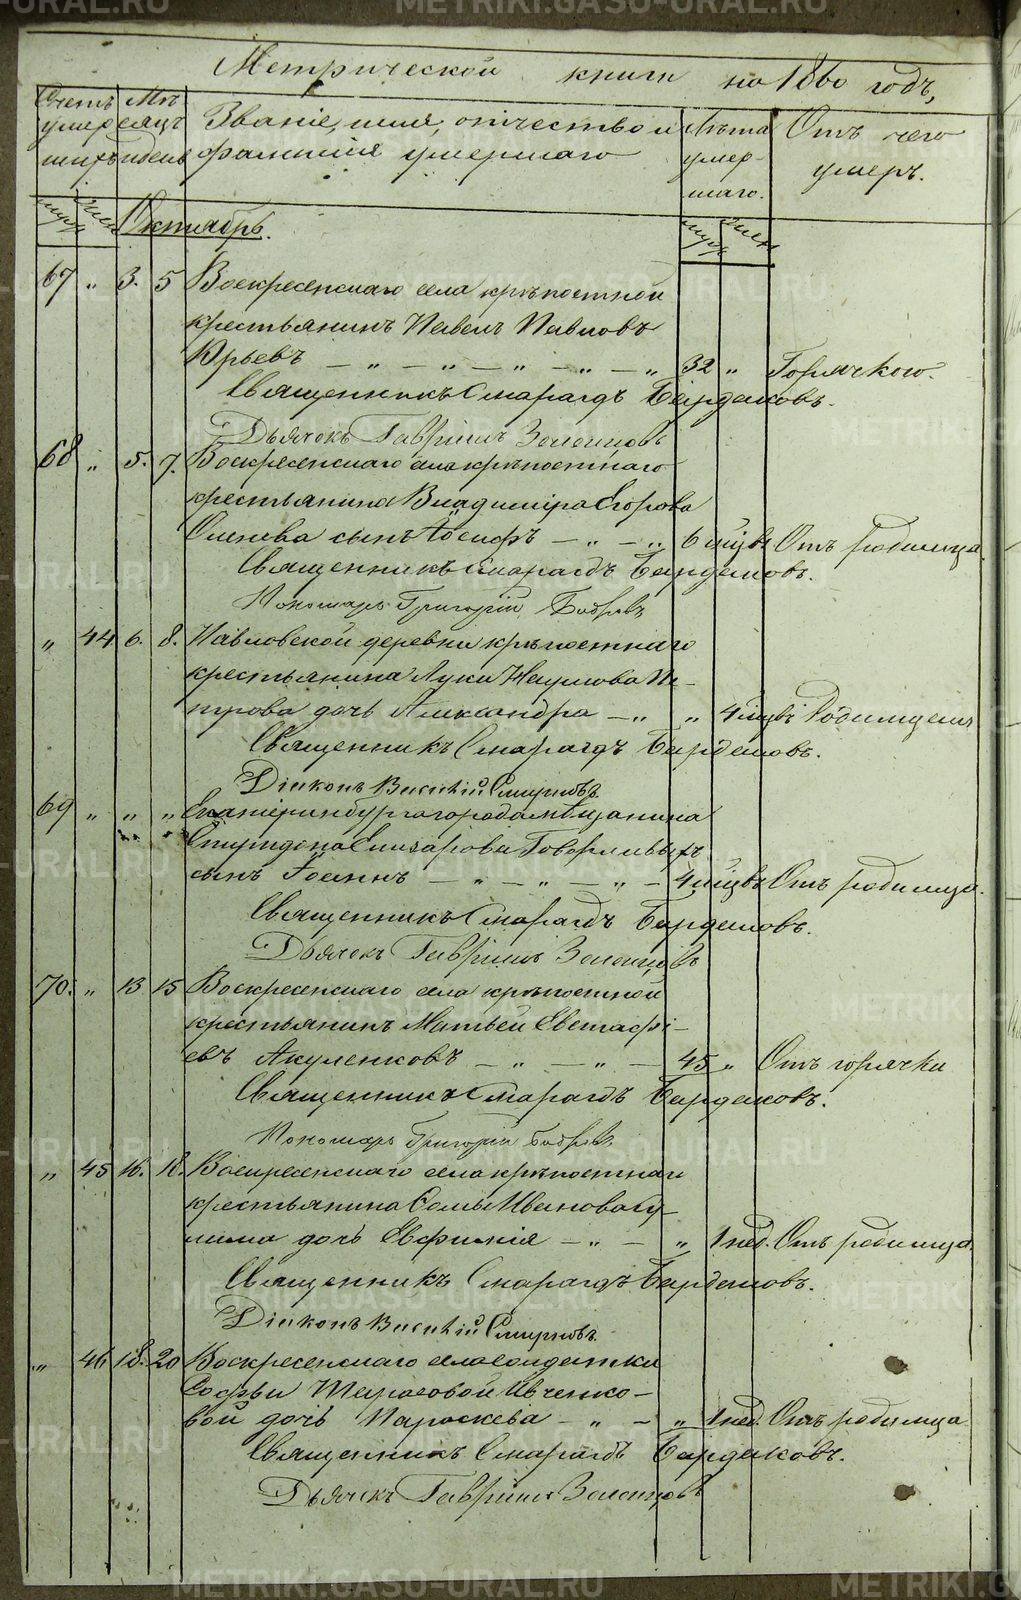 METRIKI.GASO-URAL.RU
Метрической книги на 1860 годъ,
Счетъ умершихъ
Мѣсяцъ и день
Званіе, имя, отчество и фамилія умершаго
Лѣта умершаго.
Отъ чего умеръ.
муж. жен.
Октябрь.
муж. жен.
67 " 3. 5 Воскресенскаго села крѣпостной
крестьянинъ Павелъ Павловъ
Юрьевъ — " — " — " — " — " 32 " Горячкою.
Священникъ Смарагдъ Бардаковъ.
Дьячокъ Гавріилъ
68 " 5. 7. Воскресенскаго села крѣпостнаго
крестьянина Владиміра Егорова
сынъ Іосифъ — " — " 6 мцвъ Отъ родимца.
Священникъ Смарагдъ Бардаковъ.
Пономарь Григорій Бобровъ
" 44 6. 8. Павловской деревни крѣпостнаго
крестьянина Луки Наумова Пе-
трова дочь Александра — " " 4 мцвъ Родимцемъ
Священникъ Смарагдъ Бардаковъ.
Діаконъ Василій Смирновъ
69 " " " Екатеринбурга города мѣщанина
Спиридона Елизарова Говорливыхъ
сынъ Іоаннъ — " — " — " — 4 мцвъ Отъ родимца.
Священникъ Смарагдъ Бардаковъ.
Дьячокъ Гавріилъ
70. " 13 15 Воскресенскаго села крѣпостной
крестьянинъ Матвей Евстафі-
евъ Акуленковъ — " — " — 45 " Отъ горячки
Священникъ Смарагдъ Бардаковъ.
Пономарь Григорій Бобровъ
" 45 16. 18. Воскресенскаго села крѣпостнаго
крестьянина Ѳомы Иванова Су-
лима дочь Евфимія — " — " 1 нед. Отъ родимца.
Священникъ Смарагдъ Бардаковъ.
Діаконъ Василій Смирновъ
" 46 18. 20 Воскресенскаго села солдатки
Софьи Тарасовой Ивченко-
вой дочь Параскева — " — " 1 нед. Отъ родимца
Священникъ Смарагдъ Бардаковъ.
Дьячокъ Гавріилъ
METRIKI.GASO-URAL.RU